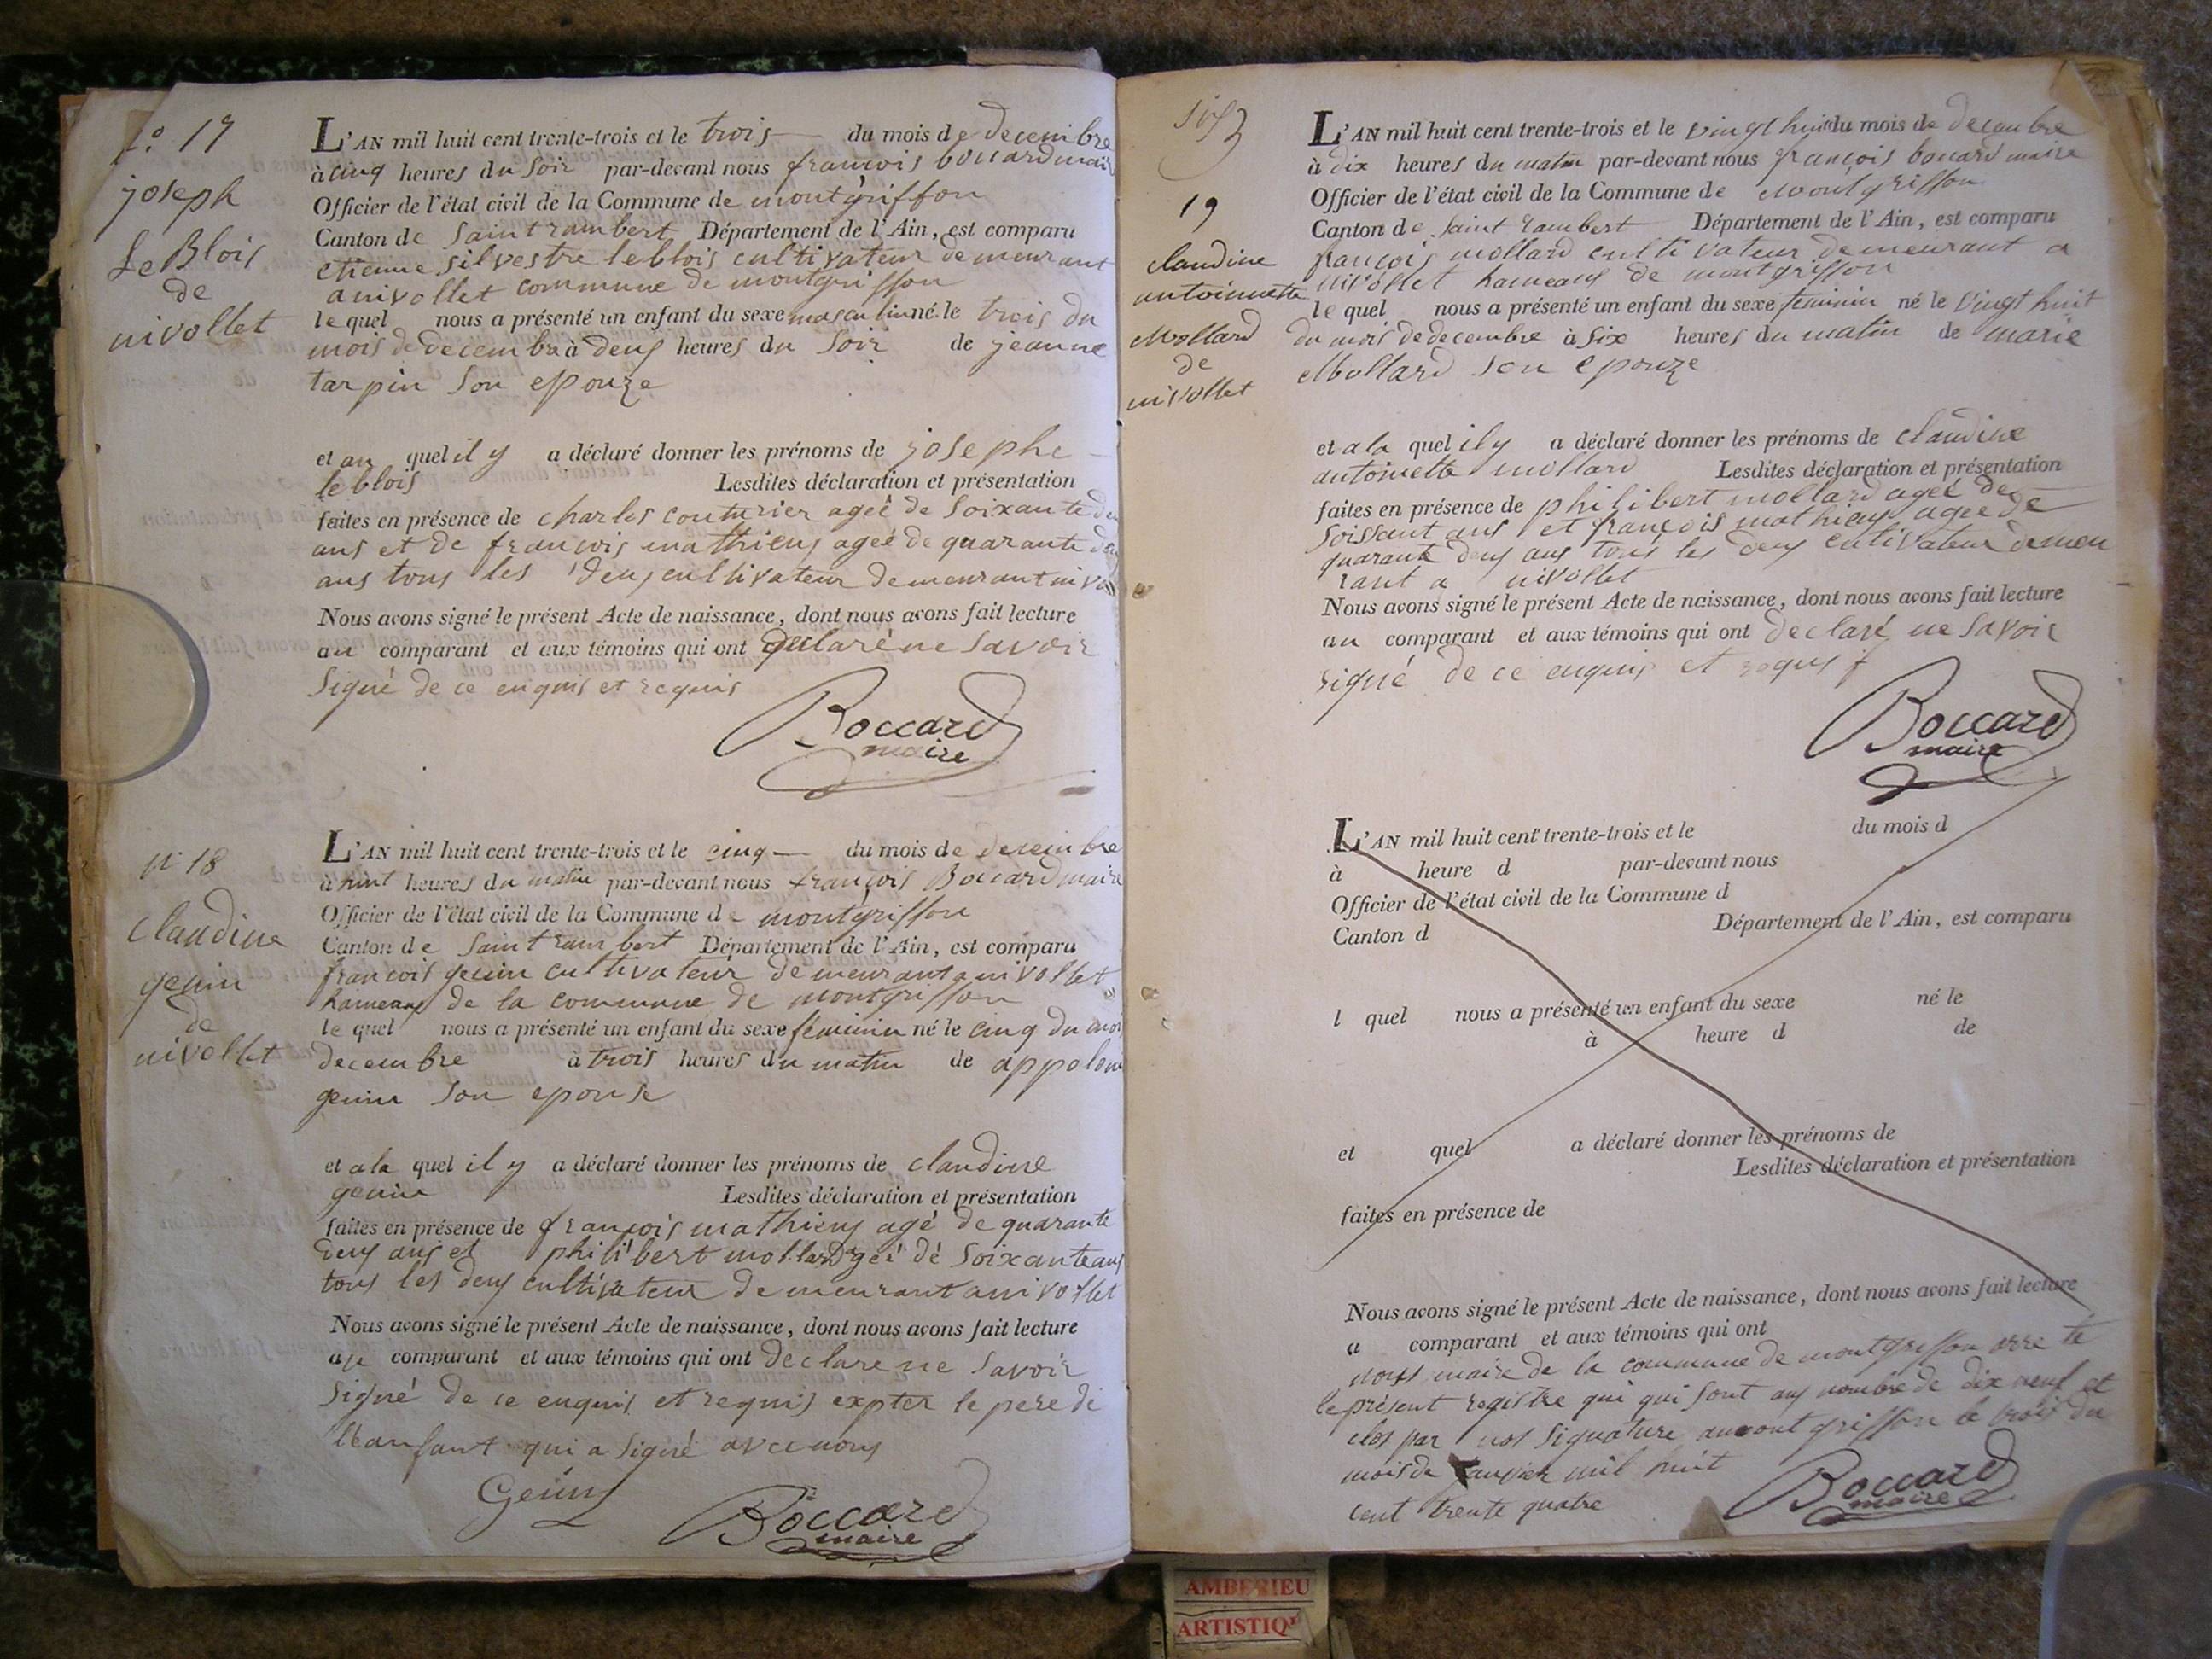 N.° 17
joseph
Le Blois
de
nivollet
L'AN mil huit cent trente-trois et le trois du mois de decembre
à cinq heures du soir par-devant nous francois bouard maire
Officier de l'état civil de la Commune de montgriffon
Canton de Saint rambert Département de l'Ain, est comparu
etienne silvestre leblois cultivateur demeurant
a nivollet commune de montgriffon
le quel nous a présenté un enfant du sexe masculin né le trois du
mois de decembre à deux heures du soir de jeanne
tarpin son epouze
et au quel il y a déclaré donner les prénoms de josephe
leblois Lesdites déclaration et présentation
faites en présence de charles couturier ageé de soixante
ans et de francois mathieux ageé de quarante
ans tous les deux cultivateur demeurant
Nous avons signé le présent Acte de naissance, dont nous avons fait lecture
au comparant et aux témoins qui ont declaré ne savoir
signé de ce enquis et requis
Boccard
maire
n° 18
Claudine
genin
de
nivollet
L'AN mil huit cent trente-trois et le cinq du mois de decembre
à huit heures du matin par-devant nous francois Boccard maire
Officier de l'état civil de la Commune de montgriffon
Canton de Saint rambert Département de l'Ain, est comparu
francois genin cultivateur demeurant a nivollet
hameaux de la commune de montgriffon
le quel nous a présenté un enfant du sexe féminin né le cinq du mois
decembre à trois heures du matin de
genin son epouse
et a la quel il y a déclaré donner les prénoms de claudine
genin Lesdites déclaration et présentation
faites en présence de francois mathieux agé de quarante
deux ans et philibert mollard ageé dé soixante ans
tous les deux cultivateur demeurant a nivollet
Nous avons signé le présent Acte de naissance, dont nous avons fait lecture
au comparant et aux témoins qui ont declare ne savoir
signé de ce enquis et requis expter le pere de
léanfant qui a signé avec nous
Genin
Boccard
maire
19
claudine
antoinette
Mollard
de
nivollet
L'AN mil huit cent trente-trois et le vingt huit du mois de decembre
à dix heures du matin par-devant nous francois bouard maire
Officier de l'état civil de la Commune de Montgriffon
Canton de Saint rambert Département de l'Ain, est comparu
francois mollard cultivateur demeurant a
nivollet hameaux de montgriffon
le quel nous a présenté un enfant du sexe feminin né le vingt huit
du mois de decembre à six heures du matin de marie
Mollard son epouze
et a la quel il y a déclaré donner les prénoms de claudine
antoinette mollard Lesdites déclaration et présentation
faites en présence de philibert mollard ageé de
soissant ans et francois mathieux ageé de
quarante deux ans tous les deux cultivateur demeu
rant a nivollet
Nous avons signé le présent Acte de naissance, dont nous avons fait lecture
au comparant et aux témoins qui ont declaré ne savoir
signé de ce enquis et requis
Boccard
maire
L'AN mil huit cent trente-trois et le du mois d
à heure d par-devant nous
Officier de l'état civil de la Commune d
Canton d Département de l'Ain, est comparu
l quel nous a présenté un enfant du sexe né le
à heure d de
et quel a déclaré donner les prénoms de
Lesdites déclaration et présentation
faites en présence de
Nous avons signé le présent Acte de naissance, dont nous avons fait lecture
a comparant et aux témoins qui ont
nous maire de la commune de montgriffon arre te
le présent registre qui qui sont aux nombre de dix neuf et
clos par nos signature montgriffon le trois du
mois de janvier mil huit
cent trente quatre
Boccard
maire
AMBERIEU
ARTISTIQ